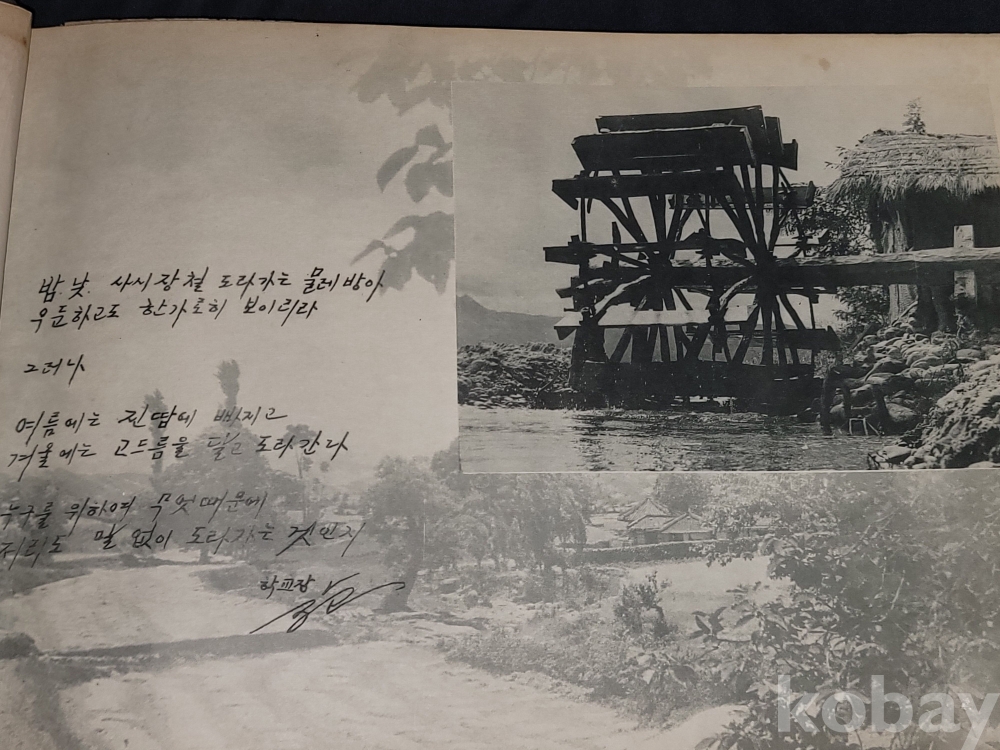 밥.낮. 사시장철 도라가는 물레방아
우둔하고도 한가로히 보이리라
그러나
여름에는 진땀에 빠지고
겨울에는 고드름을 달고 도라간다
누구를 위하여 무엇때문에
저리도 말없이 도라가는 것인지
학교장
kobay